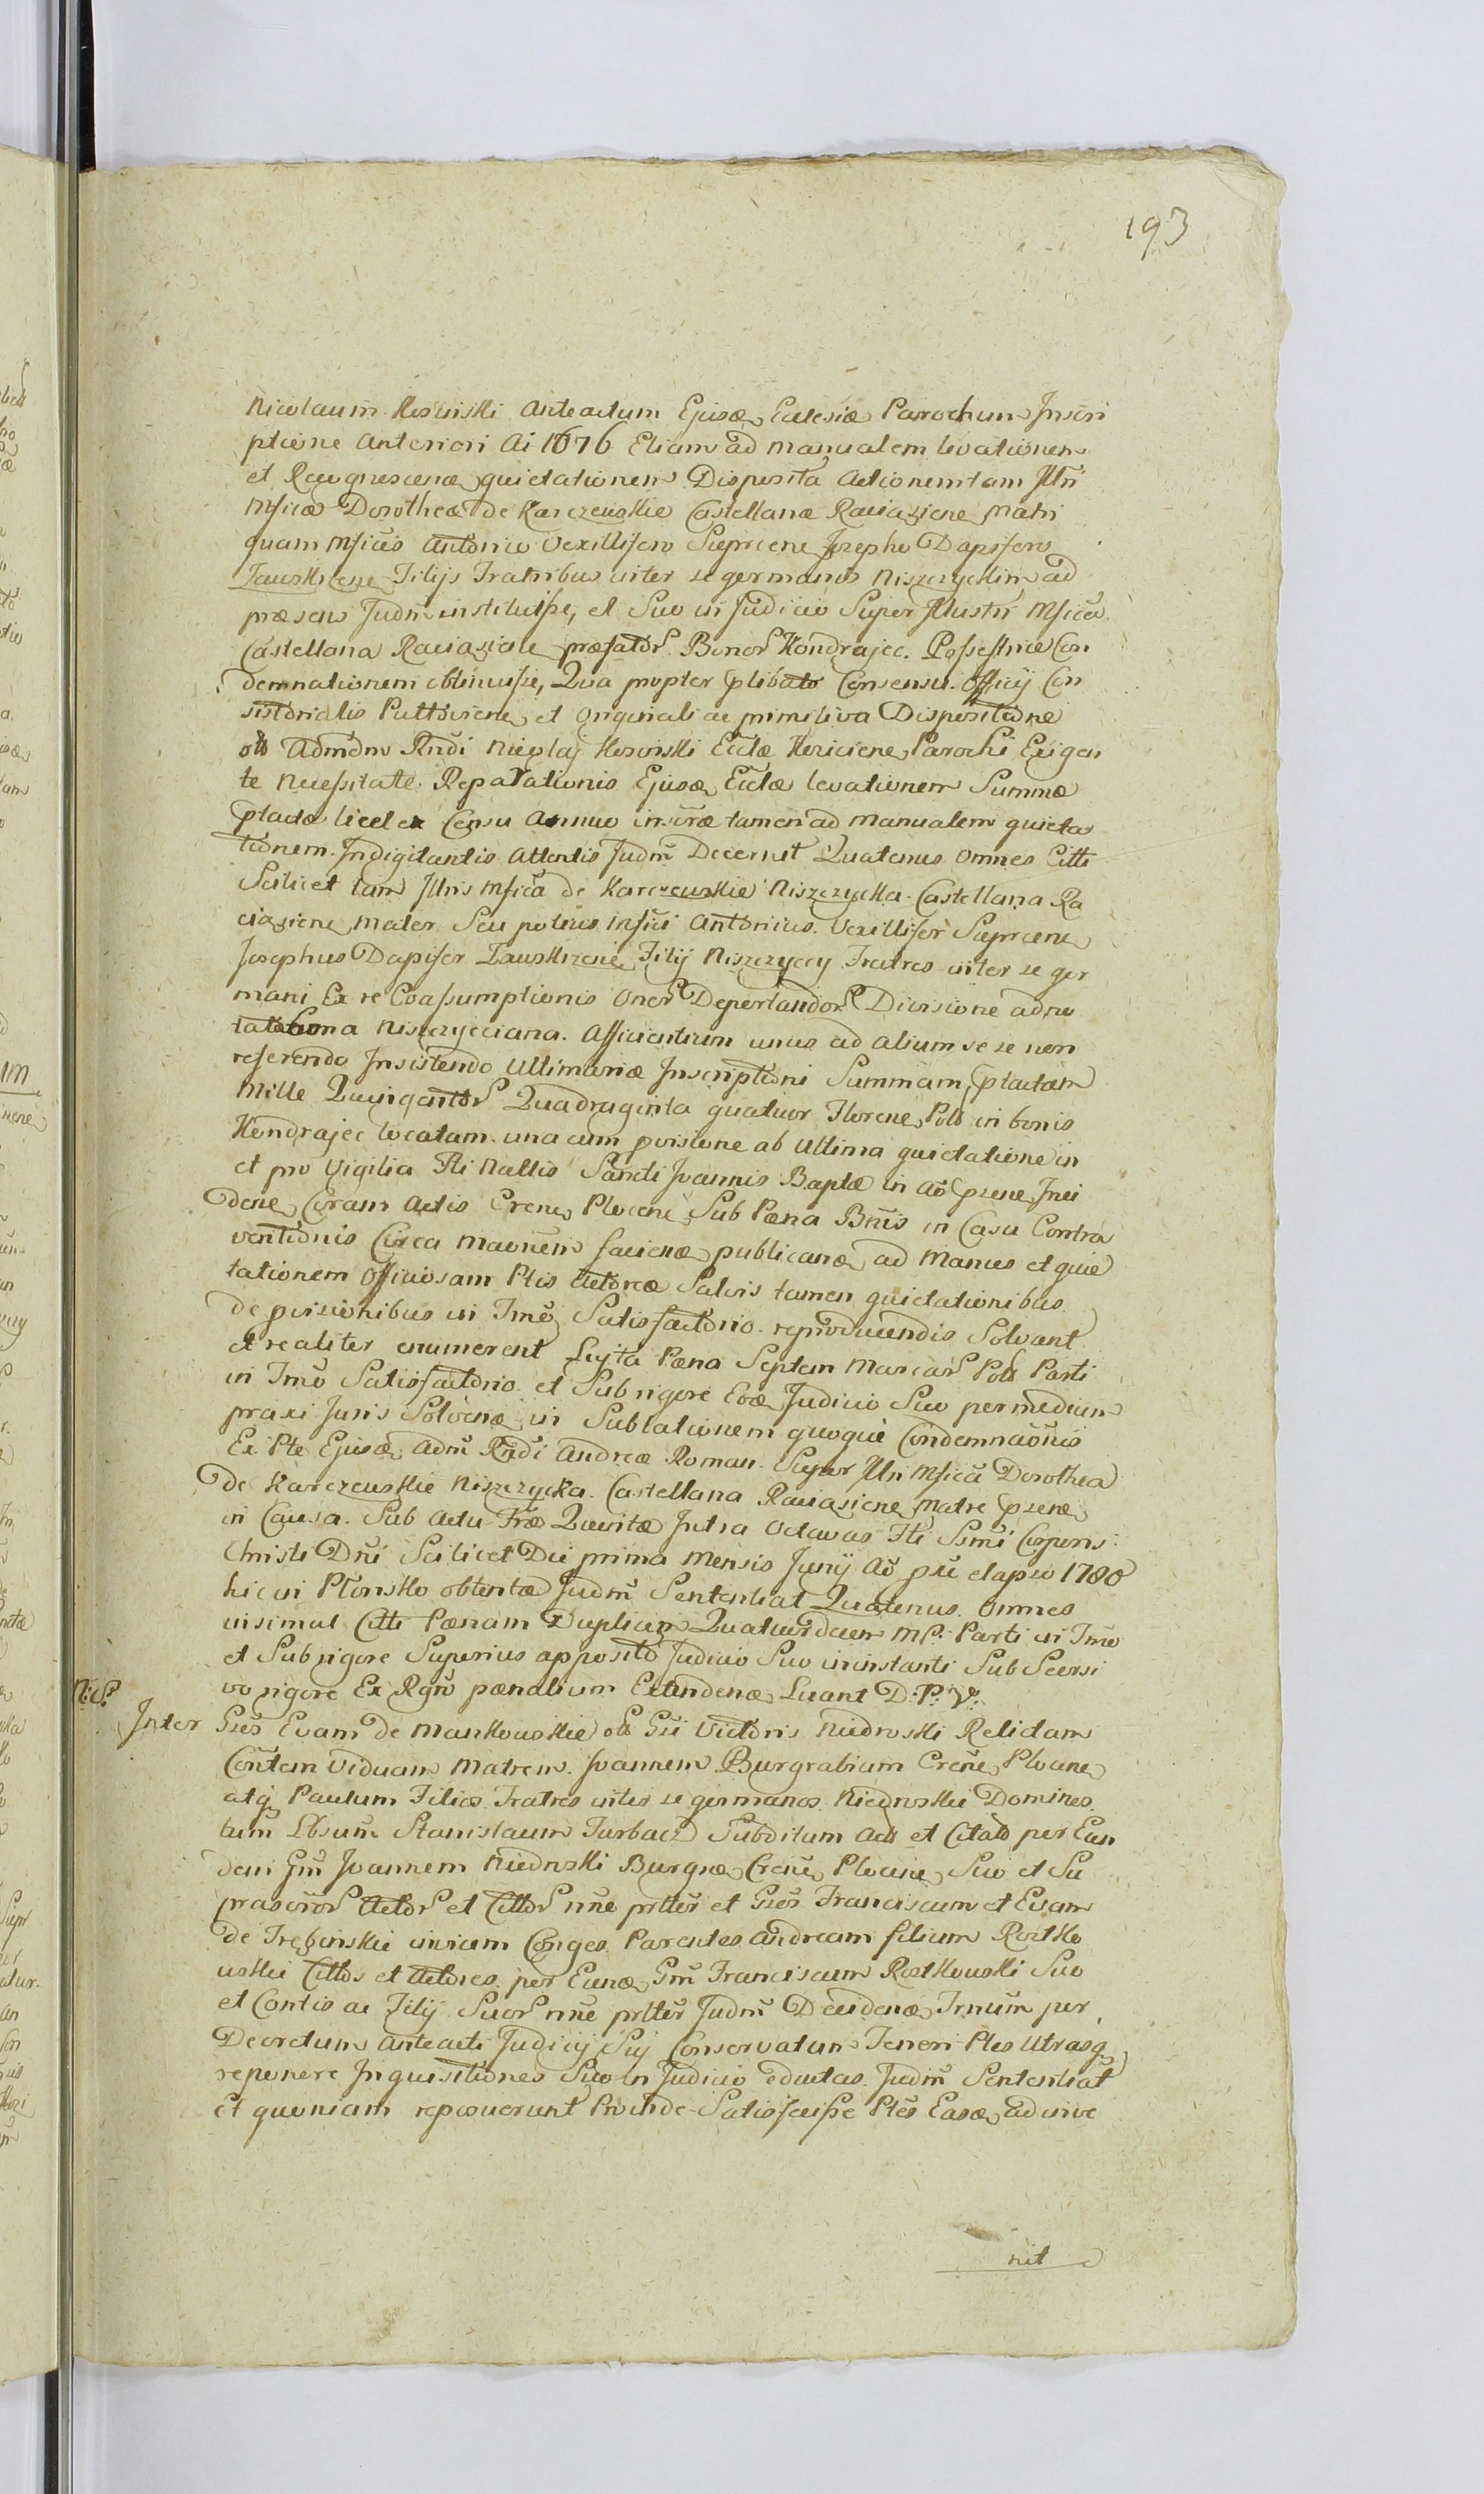 193
Nicolaum Kosinski Anteactum Ejusd Ecclesiæ Parochum Inscri
ptione Anteriori Ai 1676 Etiam ad manualem levationem
et Recognoscend quietationem Disposita Actionem tam Illri
Mficæ Dorotheæ de Karczewskie Castellanæ Raciaziene Matri
quam Mficis Antonio Vexillifero Sieprcene Josepho Dapifero
Zawskrzene Filijs Fratribus inter se germanis Niszczyckim ad
præsens Judm instituisse, et Suo in Judicio Super Illustri Mfica
Castellana Raciaziene præfator Bonor Kondrajec Possestrice Con
demnationem obtinuisse, Qua propter plibato Consensu Officij Con
sistorialis Pultoviene et originali ac primitiva Dispositione
olo Admdm Rndi Nicolaj Kosinski Ecclæ Koziciene Parochi Exigen
te Necessitate Reparationis Ejusd Ecclæ levationem Summæ
ptactæ licet ex Censu Annuo inscræ tamen ad manualem quieta
tionem Indigitantis Attentis Judm Decernit Quatenus omnes Citti
Scilicet tam Illris Mfica de Karczewskie Niszczycka Castellana Ra
ciaziene Mater Seu potius Mfici Antonius Vexillifer Sieprcene
Josephus Dapifer Zawskrzene Filij Niszczyccy Fratres inter se ger
mani Ex re Coassumptionis Oner Deportandor Divisione adno
tata bona Niszczyciana Afficientium unus ad alium se se non
referendo Insistendo Ultimariæ Inscriptioni Summam ptactam
Mille Quingentor Quadraginta quatuor Florene Polo in bonis
Kondrajec locatam una cum provisione ab Ultima quietatione in
et pro Vigilia Fti Natlis Sancti Joannis Baptæ in Ao psene Inci
dene Coram Actis Crene Plocene Sub Pæna Bnis in Casu Contra
ventionis Circa maonem faciend publicand ad Manus et quie
tationem Officiosam Ptis Actoreæ Salvis tamen quietationibus
de provisionibus in Tmo Satisfactorio reproducendis Solvant
et realiter enumerent Luita Pæna Septem Marcar Polo Parti
in Tmo Satisfactorio et Sub rigore Eod Judicio Suo per medium
praxi Juris Solvend in Sublationem quoque Condemnaonis
Ex Pte Ejusd Adm Rndi Andreæ Roman Super Illri Mfica Dorothea
de Karczewskie Niszczycka Castellana Raciaziene Matre psene
in Causa Sub Actu Fræ Quintæ Intra Octavas Fti Ssmi Corporis
Christi Dni Scilicet Die prima Mensis Junij Ao pxe elapso 1780
hic in Plonsko obtentæ Judm Sententiat Quatenus omnes
insimul Citti Pænam Duplicem Quatuordecem M. P. Parti in Tmo
et Sub rigore Superius apposito Judicio Suo in instanti Sub Seorsi
vo rigore Ex Rgro pænalium Extendend Luant D. P. V.
Inter Gsos Evam de Mankowskie olo Gsi Victoris Niedroski Relictam
Contem Viduam Matrem Joannem Burgrabium Crene Plocene
atq Paulum Filios Fratres inter se germanos Niedroskie Domines
tum Lbsum Stanislaum Jurbacz Subditum Act et Citato per Eun
dem Gm Joannem Niedroski Burgræ Crene Plocene Suo et Su
prascror Actor et Cittor nne prtter et Gsos Franciscum et Evam
de Trębinskie invicem Coniges Parentes Andream filium Rostko
wskie Cittos et Actores per Eund Gm Franciscum Rostkowski Suo
et Contis ac Filij Suor nne prtter Judm Decidend Trnum per
Decretum Anteacti Judicij Sui Conservatum Teneri Ptes Utrasq
reponere Inquisitiones Suo in Judicio eductas Judm Sententiat
Et quoniam reposuerunt Proinde Satisfecisse Ptes Easd adinve
nit